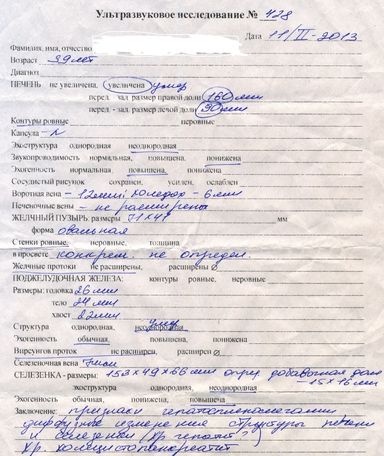 Ультразвуковое исследование № 428
Дата 11/II-2013
Фамилия, имя, отчество
Возраст 39 лет
Диагноз
ПЕЧЕНЬ не увеличена, увеличена умер
перед. - зад. размер правой доли 160 мм
перед. - зад. размер левой доли 90 мм
Контуры ровные неровные
Капсула - N
Эхоструктура однородная неоднородная
Звукопроводимость нормальная, повышена, понижена
Эхогенность нормальная повышена, понижена
Сосудистый рисунок сохранен, усилен, ослаблен
Воротная вена - 12 мм холедох - 6 мм
Печеночные вены - не расширены
ЖЕЛЧНЫЙ ПУЗЫРЬ размеры 71 х 41 мм
форма овальная
Стенки ровные, неровные, толщина
в просвете конкрем. не определ.
Желчные протоки не расширены, расширены
ПОДЖЕЛУДОЧНАЯ ЖЕЛЕЗА: контуры ровные, неровные
Размеры: головка 26 мм
тело 24 мм
хвост 22 мм
Структура однородная, неоднородная
Эхогенность обычная, повышена, понижена
Вирсунгов проток не расширен, расширен
Селезеночная вена 7 мм
СЕЛЕЗЕНКА - размеры: 152 х 49 х 66 мм опред добавочная доля
- 15 х 16 мм
эхоструктура однородная, неоднородная
Эхогенность обычная, понижена, повышена
Заключение: признаки гепатоспленомегалии
диффузные изменения структуры печени
и селезенки (хр. гепатит?)
хр. холецистопанкреатит